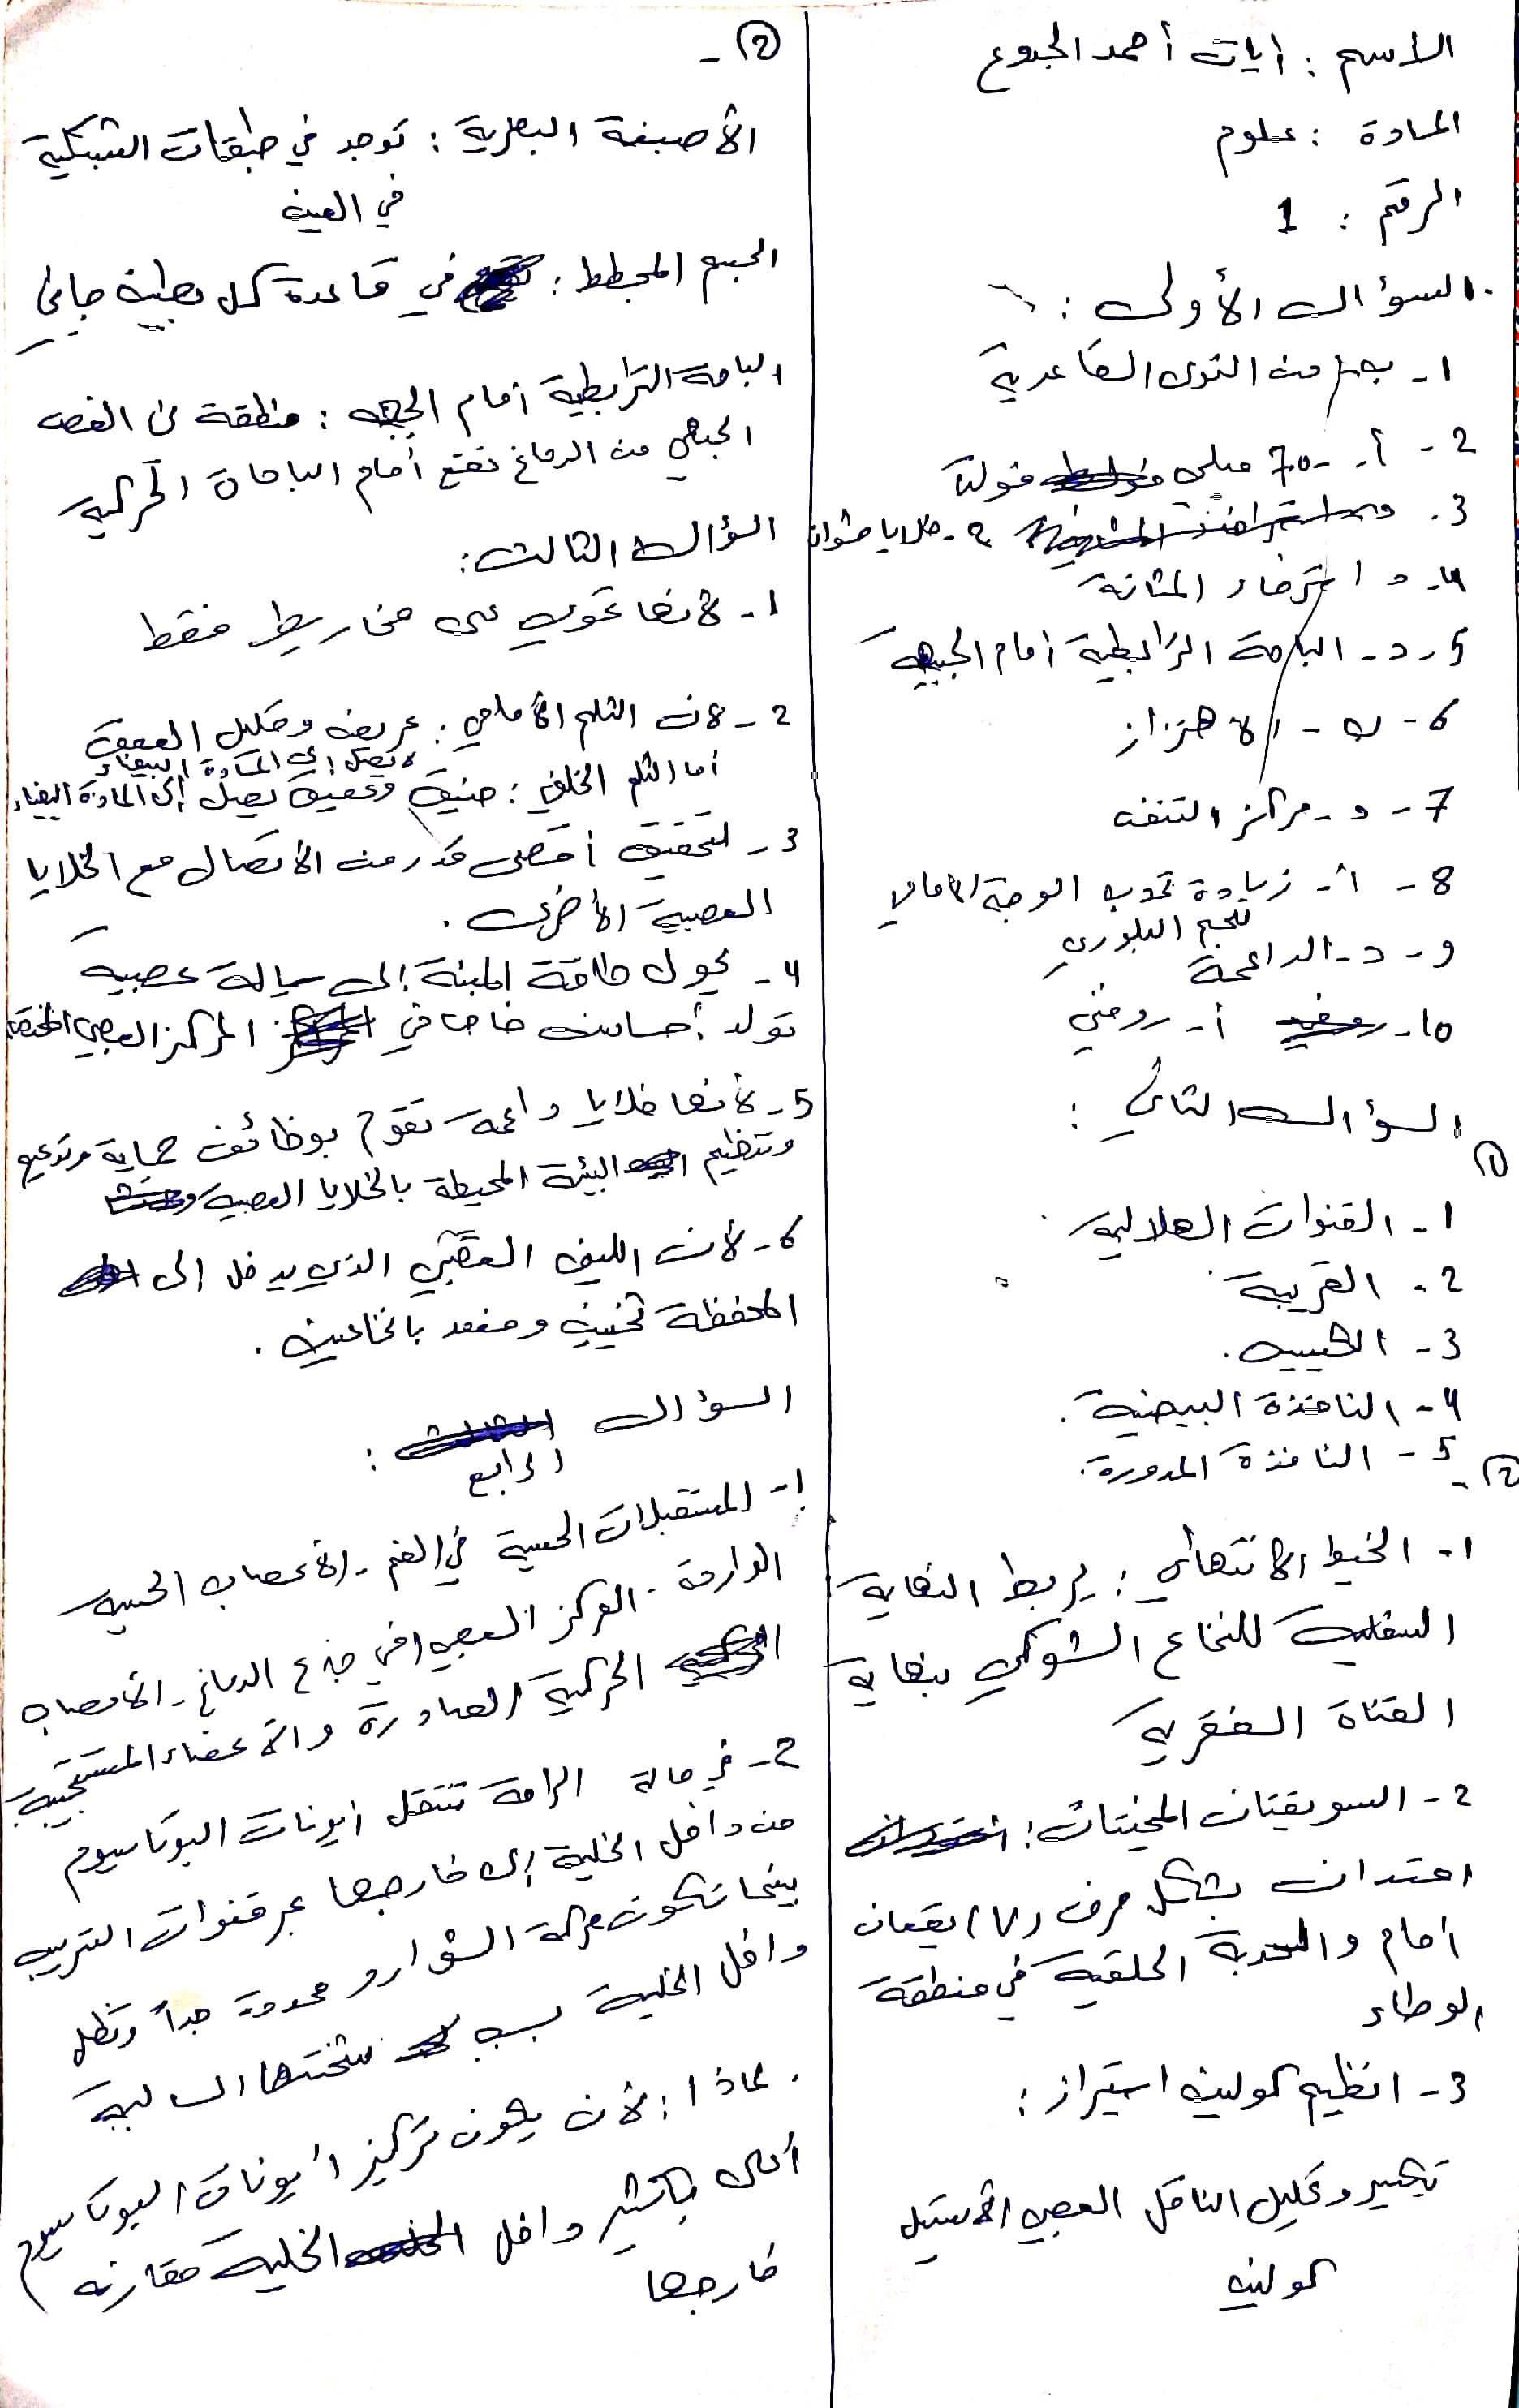 الاسم : آيات أحمد الجدوع
المادة : علوم
الرقم : 1
السؤال الأول :
1- ب- من النوى القاعدية
2- أ- 70- ميلي فولت
3- خلايا شوان
4- د استرخاء المثانة
5- د- الباحة الترابطية أمام الجبهية
6- ب - الاهتزاز
7- د- مركز التنفس
8- أ- زيادة تحدب الوجه الأمامي
للجسم البلوري
9- د- الداعمة
10- أ- روفيني
السؤال الثاني :
①
1- القنوات الهلالية
2- القريبة
3- الكييس.
4- النافذة البيضية.
5- النافذة المدورة.
②-
1- الخيط الانتهائي : يربط النهاية
السفلية للنخاع الشوكي بنهاية
القناة الفقرية
2- السويقتان المخيتان :
امتدان بشكل حرف (V) يقعان
أمام والحدبة الحلقية في منطقة
الوطاء
3- انظيم كولين استيراز :
تكسير وتحليل الناقل العصبي الأستيل
كولين
② -
الأصبغة البصرية : توجد في طبقات الشبكية
في العين
الجسم المخطط : في قاعدة كل بطين جانبي
الباحة الترابطية أمام الجبهية : منطقة من الفص
الجبهي من الدماغ تقع أمام الباحات الحركية
السؤال الثالث :
1- لأنها تحوي على مخاريط فقط
2- لأن الثلم الأمامي : عريض وقليل العمق
لا يصل إلى المادة البيضاء
أما الثلم الخلفي : ضيق وعميق يصل إلى المادة البيضاء
3- لتحقيق أقصى قدر من الاتصال مع الخلايا
العصبية الأخرى .
4- يحول طاقة المنبه إلى سيالة عصبية
تولد إحساس خاصا في المركز العصبي المختص
5- لأنها خلايا داعمة تقوم بوظائف حماية وتدعيم
وتنظيم البيئة المحيطة بالخلايا العصبية
6- لأن الليف العصبي الذي يدخل إلى
المحفظة ثخين ومغمد بالنخاعين .
السؤال
الرابع :
1- المستقبلات الحسية في الفم - الأعصاب الحسية
الواردة - المركز العصبي (في جذع الدماغ - الأعصاب
الحركية الصادرة والأعضاء المستجيبة
2- في حالة الراحة تنتقل أيونات البوتاسيوم
من داخل الخلية إلى خارجها عبر قنوات التسريب
بينما تكون حركة الشوارد محدودة جداً وتظل
داخل الخلية بسبب شحنتها السالبة
. لماذا : لأن يكون تركيز أيونات البوتاسيوم
أعلى بكثير داخل الخلية مقارنة
خارجها